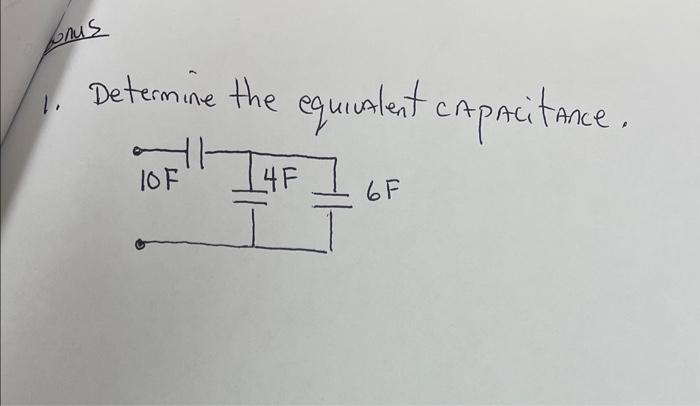 1. Determine the equivalent capacitance.
10F 4F 6F